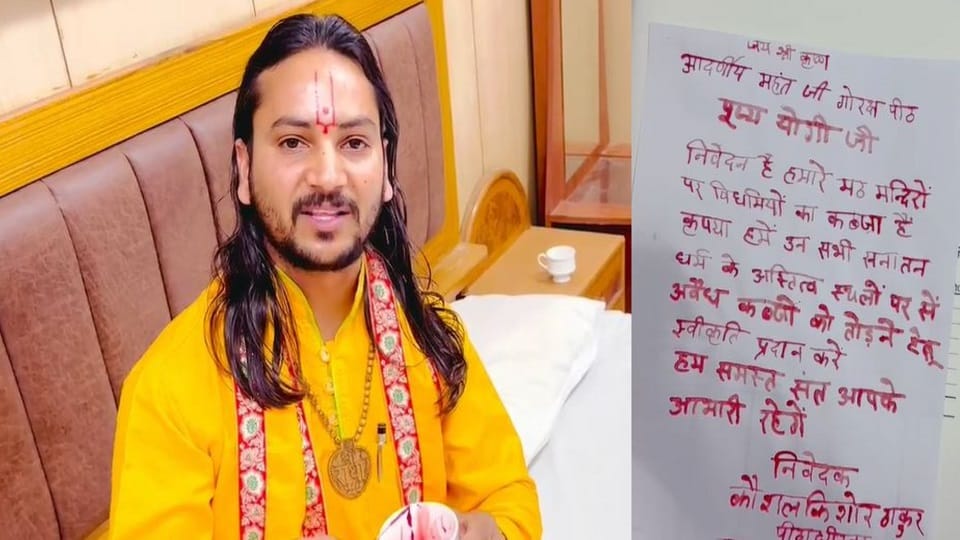 जय श्री कृष्ण
आदर्णीय महंत जी गोरक्ष पीठ
पूज्य योगी जी
निवेदन है हमारे मठ मन्दिरों
पर विधर्मियों का कब्जा है
कृपया हमें उन सभी सनातन
धर्म के अस्तित्व स्थलों पर सें
अवैध कब्जों को तोड़ने हेतू
स्वीकृति प्रदान करें
हम समस्त संत आपके
आभारी रहेगें
निवेदक
कौशल किशोर ठाकुर